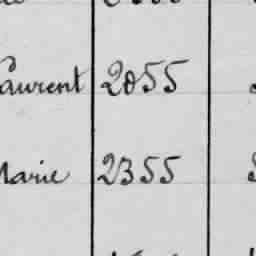 Laurent 2055
Marie 2355